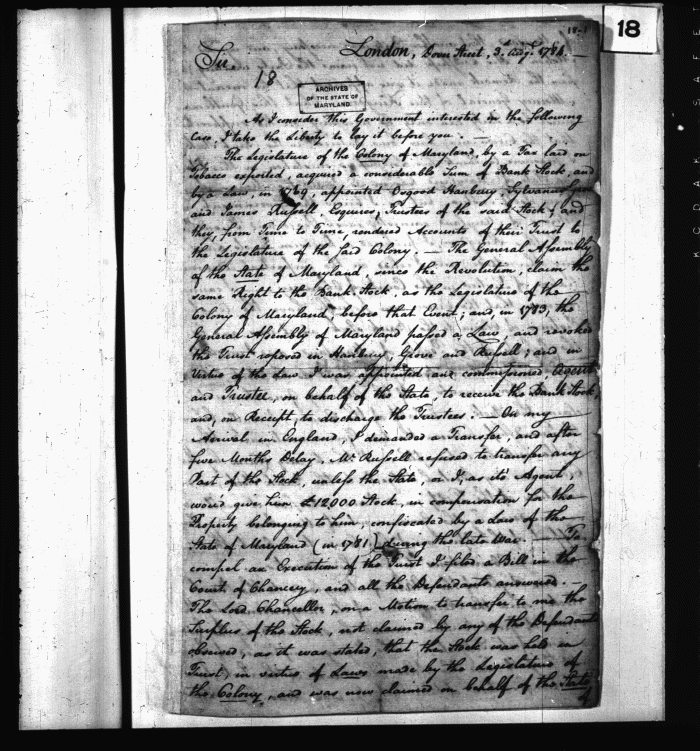 18
18-1
London, Dover Street, 3d. Augt. 1784. —
Sir.
18
ARCHIVES
OF THE STATE OF
MARYLAND.
As I consider this Government interested in the following
Case, I take the Liberty to lay it before you. —
The Legislature of the Colony of Maryland, by a Tax laid on
Tobacco exported, acquired a considerable Sum of Bank Stock, and
by a Law, in 1769, appointed Osgood Hanbury, Sylvanus Grove
and James Russell, Esquires, Trustees of the said Stock; and
they, from Time to Time, rendered Accounts of their Trust to
the Legislature of the said Colony. — The General Assembly
of the State of Maryland, since the Revolution, claim the
same Right to the Bank Stock, as the Legislature of the
Colony of Maryland, before that Event; and, in 1783, the
General Assembly of Maryland passed a Law, and revoked
the Trust reposed in Hanbury, Grove and Russell; and in
Virtue of the Law I was appointed and commissioned Agent
and Trustee, on behalf of the State, to receive the Bank Stock
and, on Receipt, to discharge the Trustees. — On my
Arrival in England, I demanded a Transfer, and after
five Months Delay, Mr. Russell refused to transfer any
Part of the Stock, unless the State, or I, as its Agent,
would give him £12000 Stock, in compensation for the
Property belonging to him, confiscated by a Law of the
State of Maryland (in 1781) during the late War. — To
compel an Execution of the Trust I filed a Bill in the
Court of Chancery, and all the Defendants answered. —
The Lord Chancellor, on a Motion to transfer to me the
Surplus of the Stock, not claimed by any of the Defendants
observed, as it was stated, that the Stock was held in
Trust, in virtue of Laws made by the Legislature of
the Colony, and was now claimed in behalf of the State